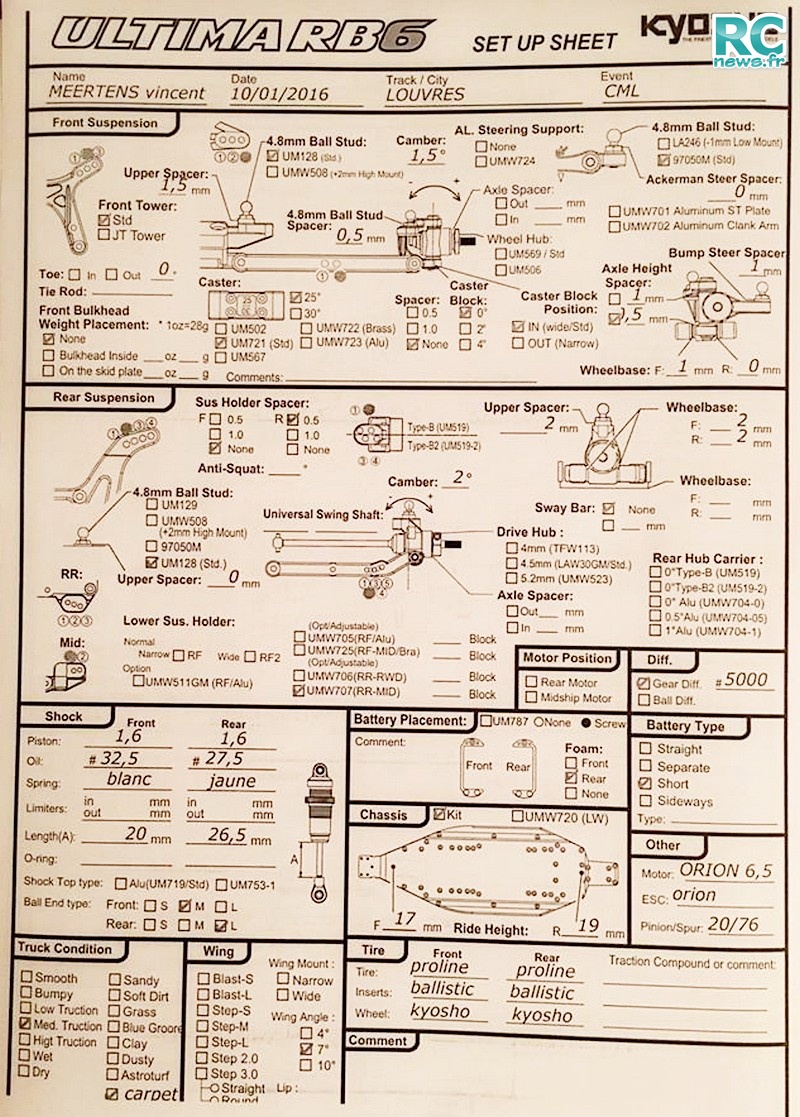 ULTIMA RB6 SET UP SHEET KYOSHO
RC
news.fr
Name Date Track / City Event
MEERTENS vincent 10/01/2016 LOUVRES CML
Front Suspension
4.8mm Ball Stud:
UM128 (Std.)
UMW508 (+2mm High Mount)
Camber:
1,5°
AL. Steering Support:
None
UMW724
4.8mm Ball Stud:
LA246 (-1mm Low Mount)
97050M (Std)
Upper Spacer:
1,5 mm
Ackerman Steer Spacer:
0 mm
Front Tower:
Std
JT Tower
4.8mm Ball Stud
Spacer:
0,5 mm
Axle Spacer:
Out mm
In mm
UMW701 Aluminum ST Plate
UMW702 Aluminum Clank Arm
Wheel Hub:
UM569 / Std
UM506
Bump Steer Spacer
1 mm
Toe: In Out 0°
Tie Rod:
Axle Height
Spacer:
1 mm
0,5 mm
Caster:
25°
30°
Spacer:
0.5
1.0
None
Caster
Block:
0°
2°
4°
Caster Block
Position:
IN (wide/Std)
OUT (Narrow)
Front Bulkhead
Weight Placement: * 1oz=28g
None
Bulkhead Inside oz g
On the skid plate oz g
UM502
UM721 (Std)
UM567
UMW722 (Brass)
UMW723 (Alu)
Comments:
Wheelbase: F: 1 mm R: 0 mm
Rear Suspension
Sus Holder Spacer:
F 0.5 R 0.5
1.0 1.0
None None
Anti-Squat: °
Type-B (UM519)
Type-B2 (UM519-2)
Upper Spacer:
2 mm
Wheelbase:
F: 2 mm
R: 2 mm
Camber: 2°
Wheelbase:
F: mm
R: mm
4.8mm Ball Stud:
UM129
UMW508
(+2mm High Mount)
97050M
UM128 (Std.)
Upper Spacer: 0 mm
Universal Swing Shaft:
Sway Bar: None
mm
Drive Hub :
4mm (TFW113)
4.5mm (LAW30GM/Std.)
5.2mm (UMW523)
Axle Spacer:
Out mm
In mm
Rear Hub Carrier :
0°Type-B (UM519)
0°Type-B2 (UM519-2)
0° Alu (UMW704-0)
0.5°Alu (UMW704-05)
1°Alu (UMW704-1)
RR:
①②③
Mid:
Lower Sus. Holder:
Normal
Narrow RF Wide RF2
Option
UMW511GM (RF/Alu)
(Opt/Adjustable)
UMW705(RF/Alu) Block
UMW725(RF-MID/Bra) Block
(Opt/Adjustable)
UMW706(RR-RWD) Block
UMW707(RR-MID) Block
Motor Position
Rear Motor
Midship Motor
Diff.
Gear Diff. #5000
Ball Diff.
Shock
Front Rear
Piston: 1,6 1,6
Oil: # 32,5 # 27,5
Spring: blanc jaune
Limiters: in mm in mm
out mm out mm
Length(A): 20 mm 26,5 mm
O-ring:
A
Shock Top type: Alu(UM719/Std) UM753-1
Ball End type: Front: S M L
Rear: S M L
Battery Placement: UM787 None Screw
Comment:
Front Rear
Foam:
Front
Rear
None
Battery Type
Straight
Separate
Short
Sideways
Type:
Chassis
Kit UMW720 (LW)
F 17 mm Ride Height: R 19 mm
Other
Motor: ORION 6,5
ESC: orion
Pinion/Spur: 20/76
Truck Condition
Smooth
Bumpy
Low Truction
Med. Truction
Higt Truction
Wet
Dry
Sandy
Soft Dirt
Grass
Blue Groore
Clay
Dusty
Astroturf
carpet
Wing
Blast-S
Blast-L
Step-S
Step-M
Step-L
Step 2.0
Step 3.0
Straight Lip :
Round
Wing Mount :
Narrow
Wide
Wing Angle :
4°
7°
10°
Tire
Front Rear
Tire: proline proline
Inserts: ballistic ballistic
Wheel: kyosho kyosho
Traction Compound or comment:
Comment